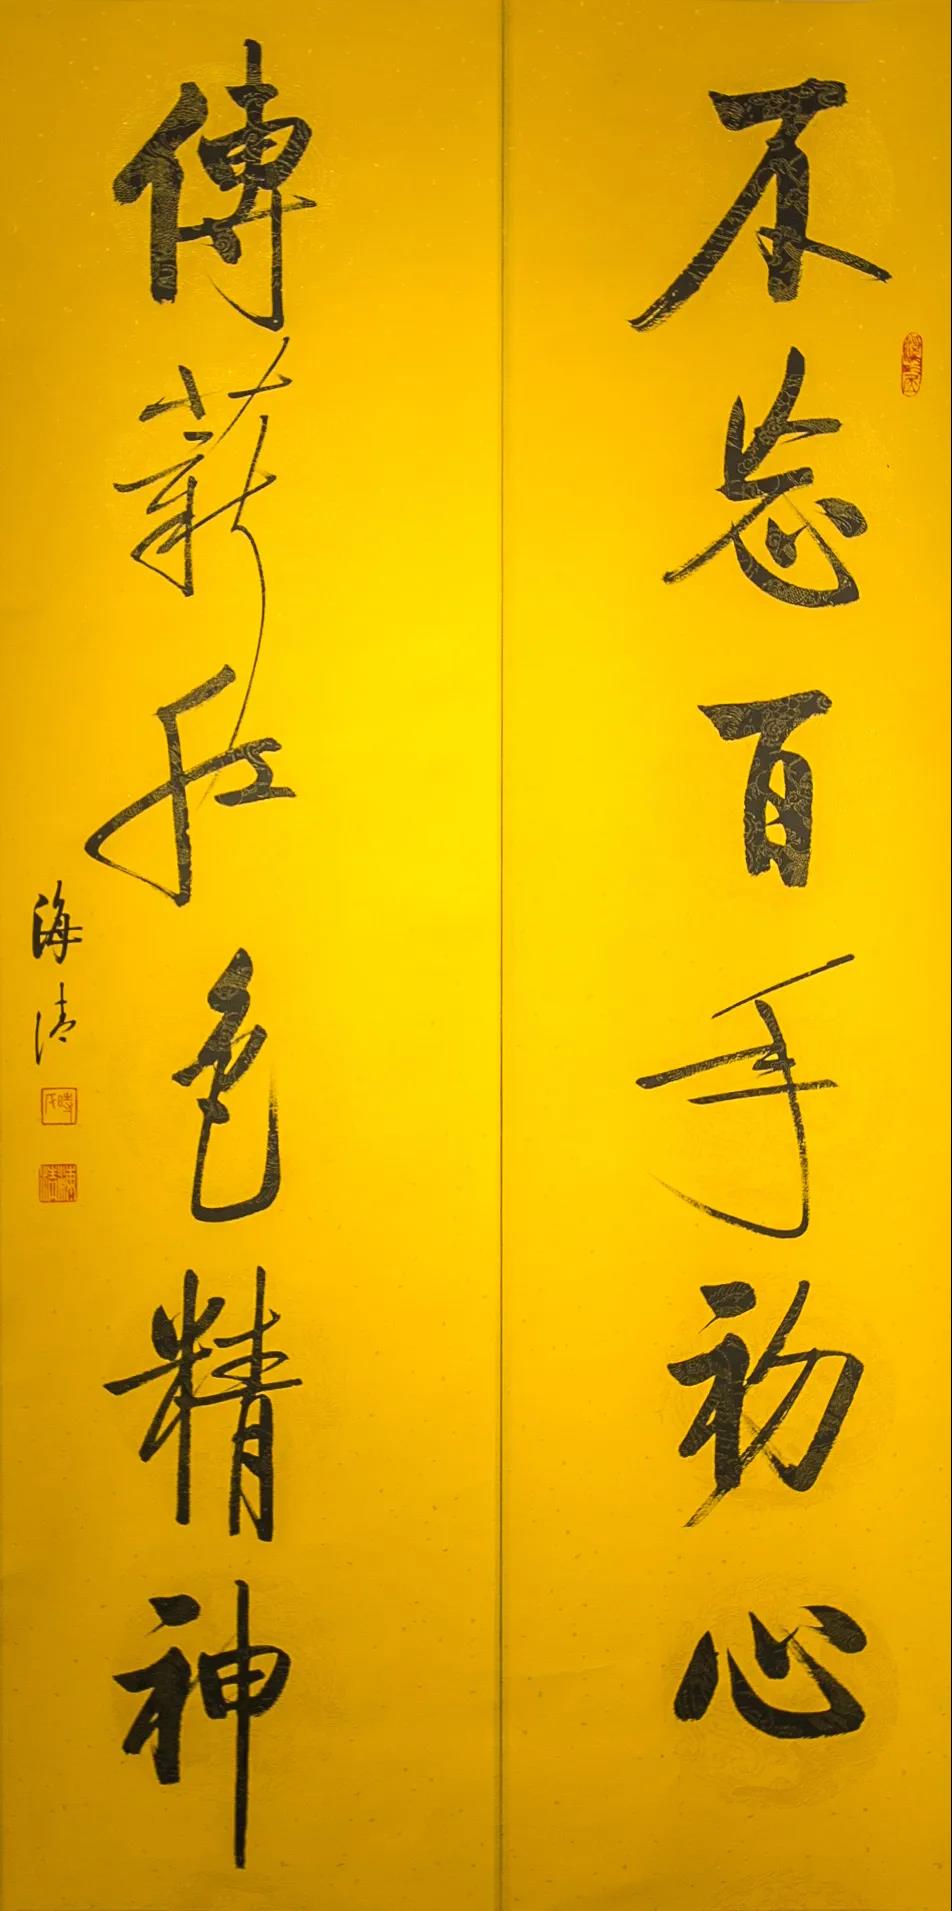 不忘百年初心
傳薪紅色精神
海清